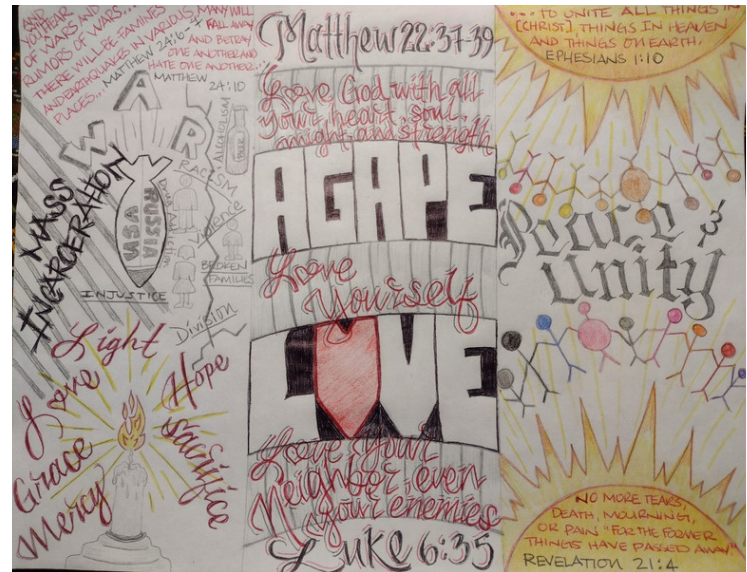 AND
YOU HEAR
OF WARS AND
RUMORS OF WARS...
THERE WILL BE FAMINES
AND EARTHQUAKES IN VARIOUS
PLACES... MATTHEW 24:6-7
MANY WILL
FALL AWAY
AND BETRAY
ONE ANOTHER AND
HATE ONE ANOTHER...
MATTHEW
24:10
WAR
MASS
INCARCERATION
RUSSIA
INJUSTICE
ALCOHOLISM
RACISM
Violence
BROKEN
FAMILIES
Division
Light
Love
Grace
Mercy
Hope
Sacrifice
Matthew 22:37-39
Love God with all
your heart, soul,
might and strength
AGAPE
Love
Yourself
LOVE
Love Your
Neighbor, even
your enemies
LUKE 6:35
... TO UNITE ALL THINGS IN
[CHRIST], THINGS IN HEAVEN
AND THINGS ON EARTH.
EPHESIANS 1:10
Peace &
Unity
NO MORE TEARS,
DEATH, MOURNING,
OR PAIN "FOR THE FORMER
THINGS HAVE PASSED AWAY"
REVELATION 21:4